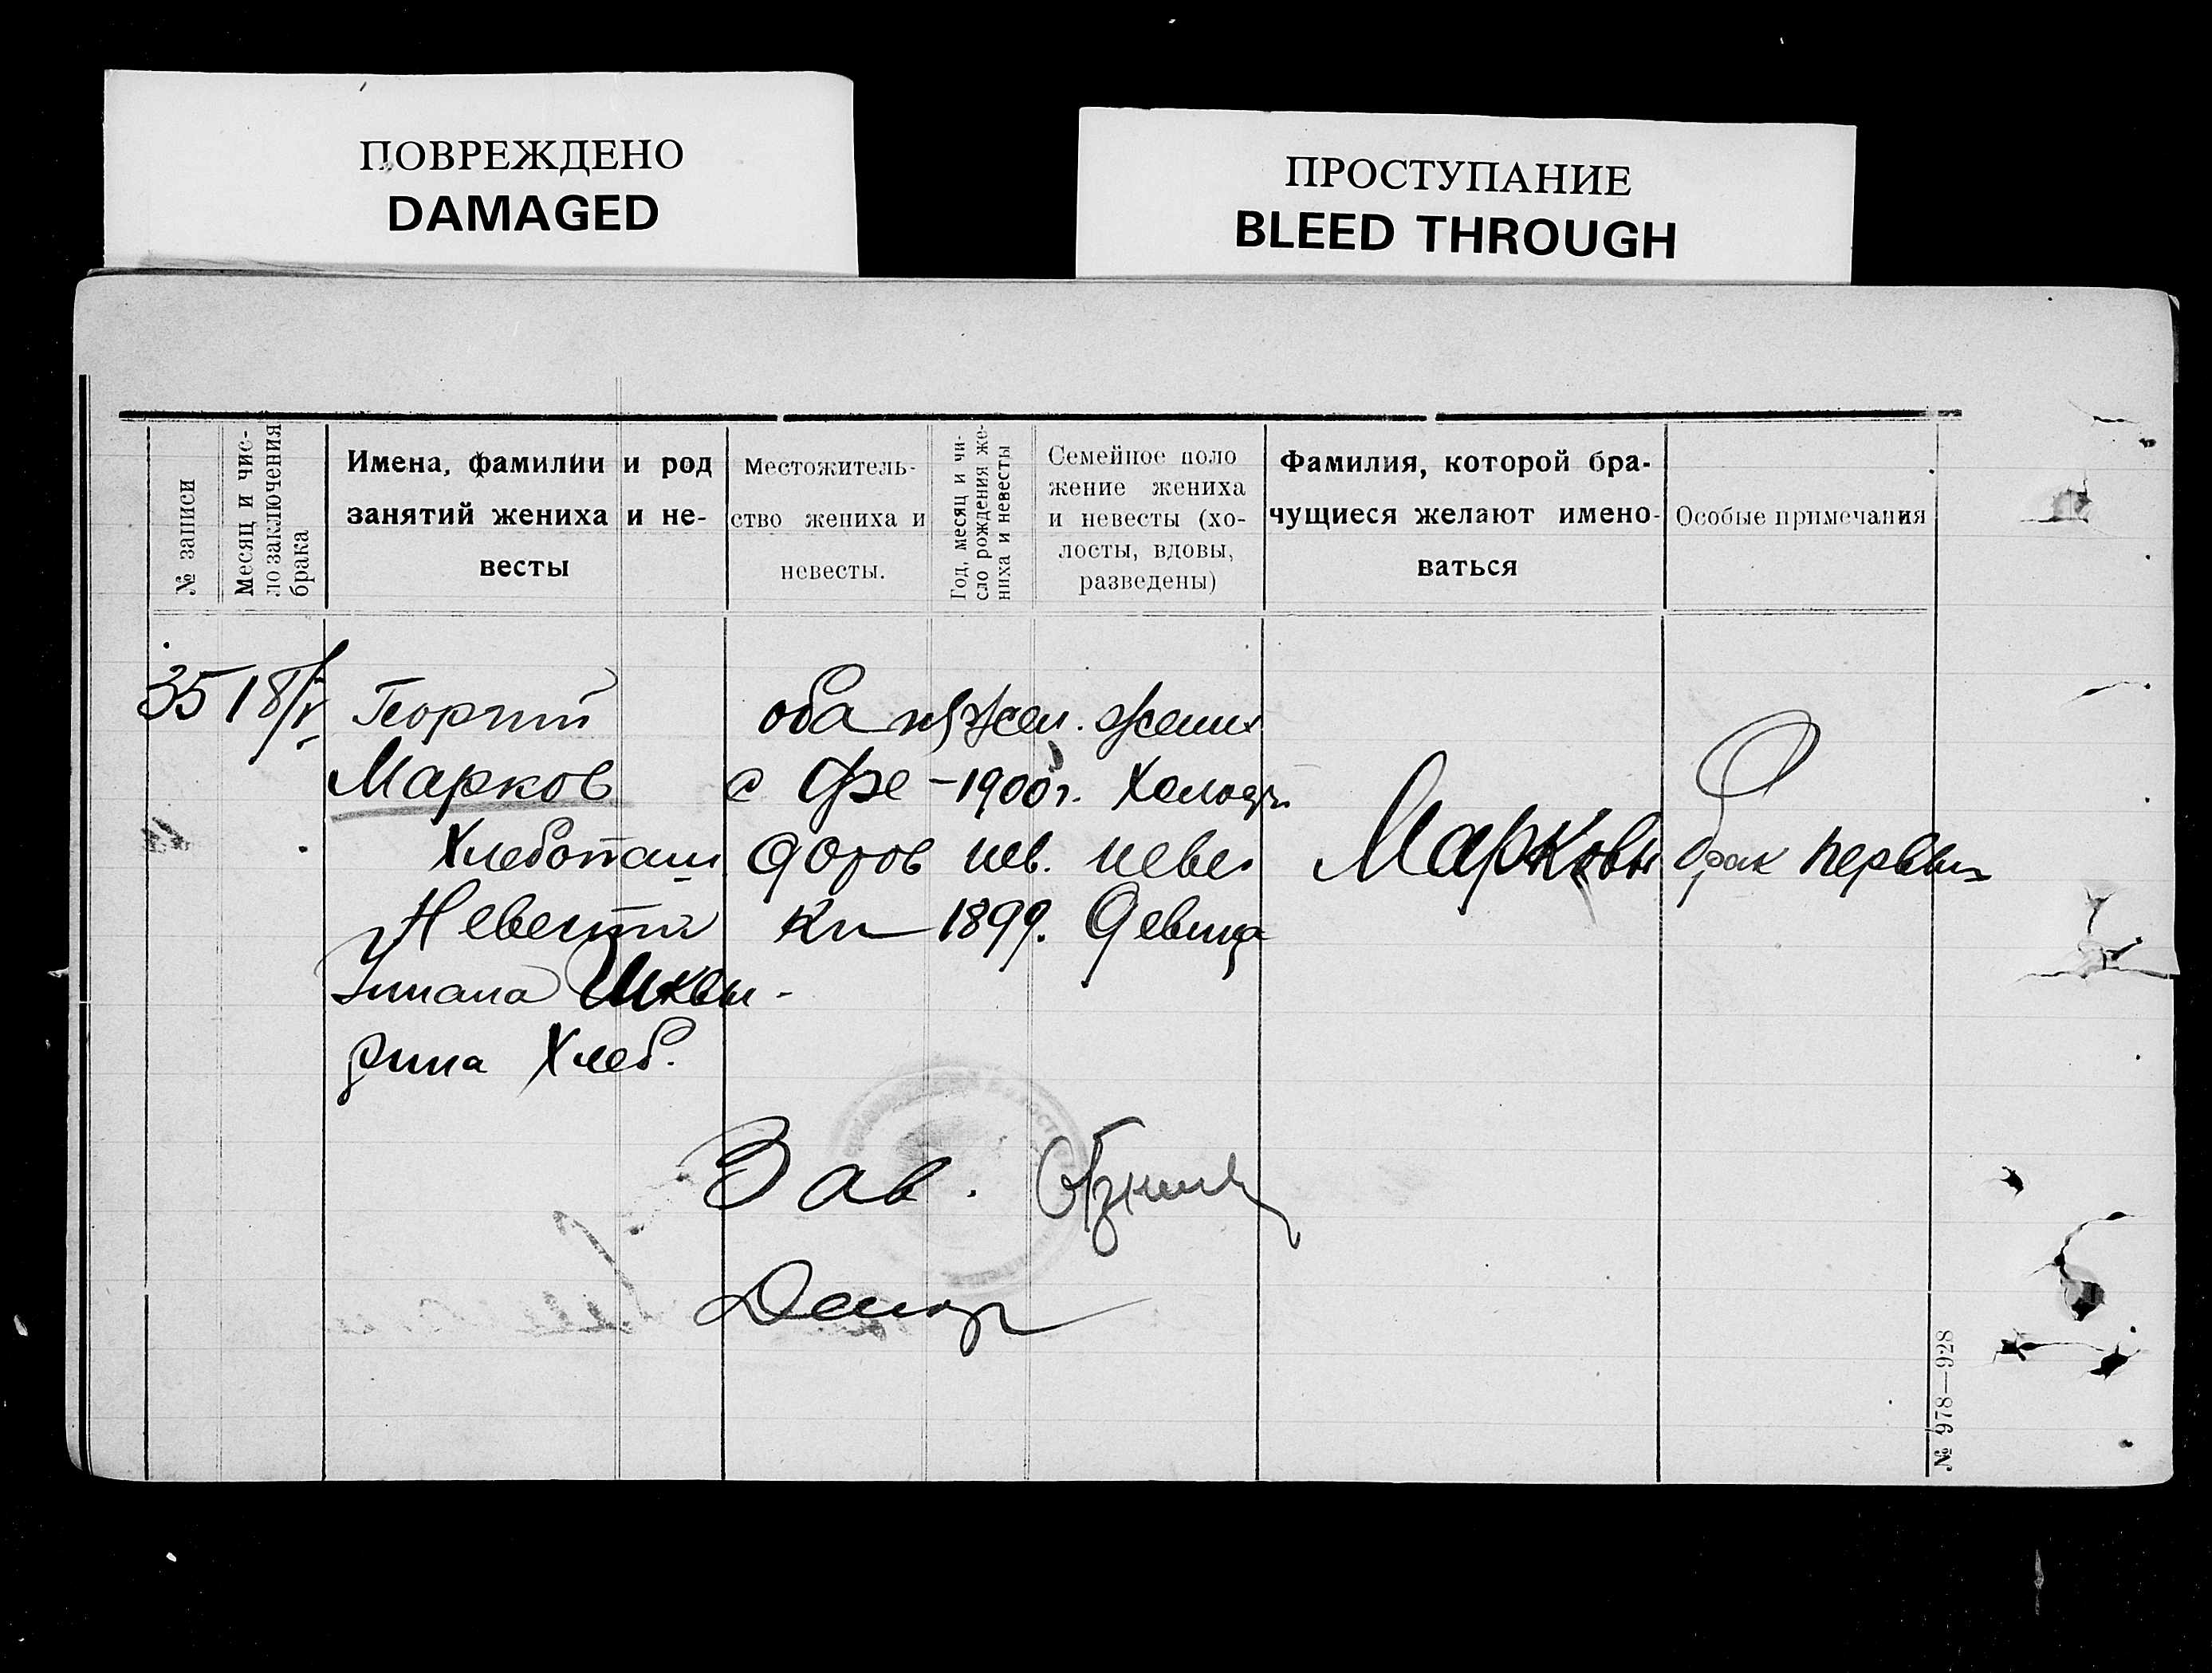 ПОВРЕЖДЕНО
DAMAGED
ПРОСТУПАНИЕ
BLEED THROUGH
№ записи
Месяц и чис-
ло заключения
брака
Имена, фамилии и род
занятий жениха и не-
весты
Местожитель-
ство жениха и
невесты.
Год, месяц и чи-
сло рождения же-
ниха и невесты
Семейное поло
жение жениха
и невесты (хо-
лосты, вдовы,
разведены)
Фамилия, которой бра-
чущиеся желают имено-
ваться
Особые примечания
35 18/V
Георгий
Марков
Хлебопаш
Невеста
Улиана Шквы-
рина Хлеб.
оба из
с Фе
доров
ки
жен.
-1900г.
нев.
1899.
жених
Холост
неве.
девица
Марковы
О
брак первый
Зав.
Делор
№ 978—928